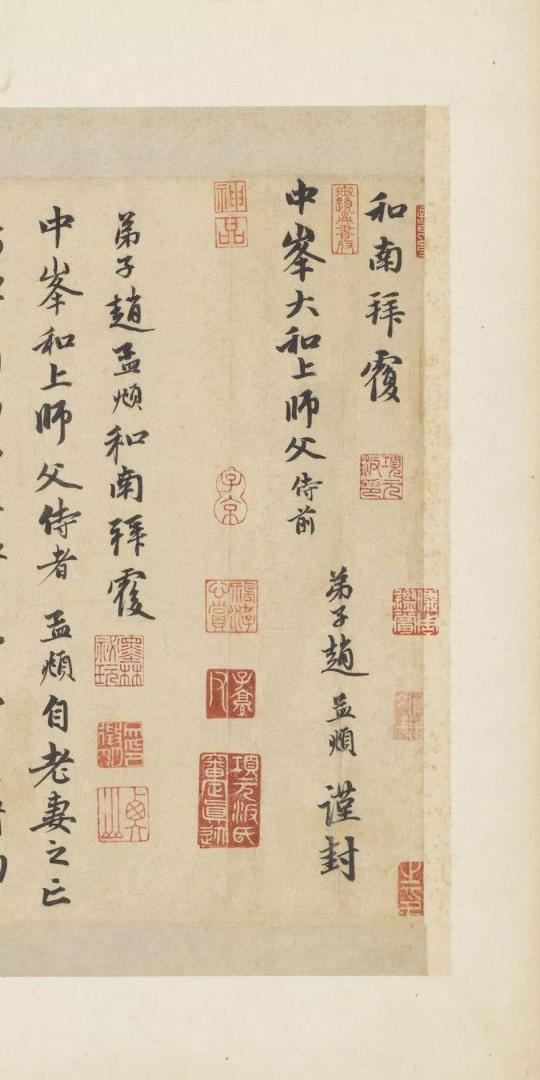 和南拜覆
中峯大和上師父侍前
弟子趙孟頫謹封
弟子趙孟頫和南拜覆
中峯和上師父侍者孟頫自老妻之亡
神品
子京
項元汴印
墨林秘玩
項元汴氏審定真跡